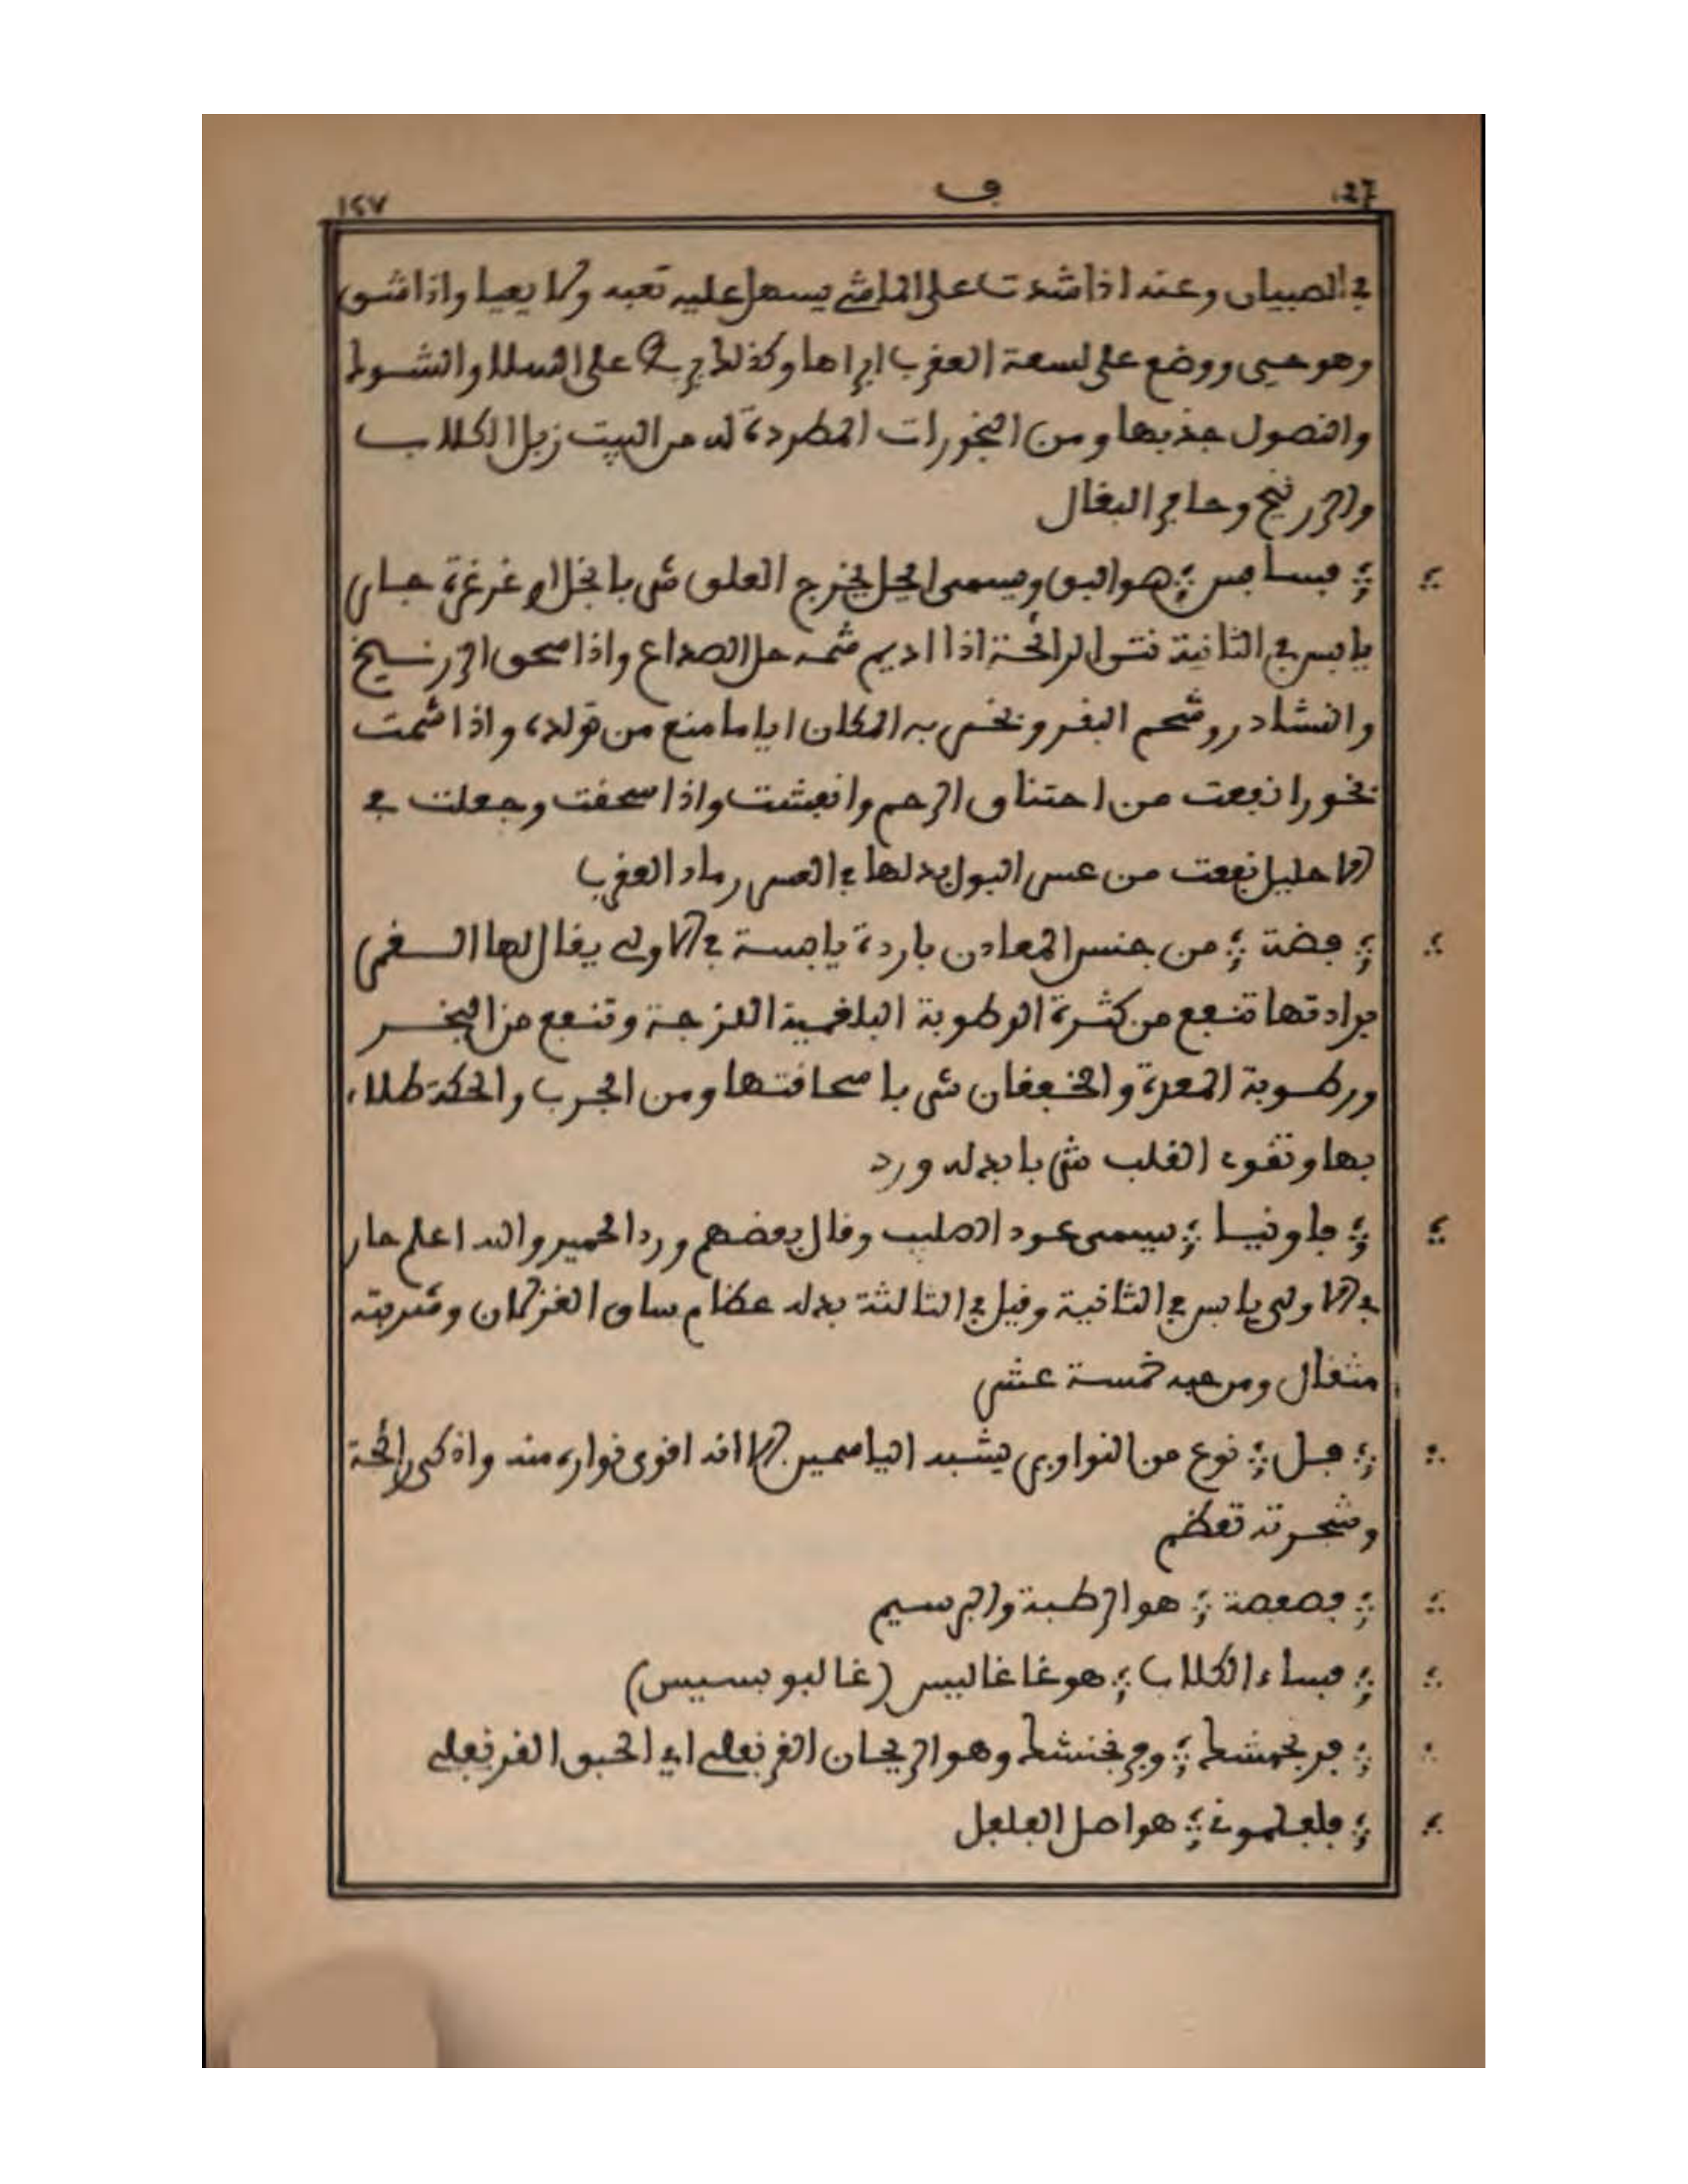 ف
١٤٧
في الصبيان وعند اذا شدت على الماشي يسهل عليه تعبه ولا يعيا واذا شق
وهو حي ووضع على لسعة العقرب ابراها وكذلك على السلا والشوك
والنصول جذبها ومن البخورات المطردة له من البيت زبل الكلاب
والزرنيخ وحافر البغال
؛ فسافس ؛ هو البق ويسمى يخرج العلق شربا بالخل او غرغرة حار
يابس في الثانية نتن الرائحة اذا اديم شمه حل الصداع واذا سحق الزرنيخ
والنشادر وشحم البقر وبخر به المكان اياما منع من تولده واذا شمت
بخورا نفعت من اختناق الرحم وانعشت واذا سحقت وجعلت في
الاحليل نفعت من عسر البول بدلها في العسر رماد العقرب
؛ فضة ؛ من جنس المعادن باردة يابسة في الاولى يقال لها
برادتها تنفع من كثرة الرطوبة البلغمية اللزجة وتنفع من البخر
ورطوبة المعدة والخفقان شربا سحاقتها ومن الجرب والحكة طلاء
بها وتقوي القلب شربا بدله ورد
؛ فاونيا ؛ يسمى عود الصليب وقال بعضهم ورد الحمير والله اعلم حار
في الاولى يابس في الثانية وقيل في الثالثة بدله عظام ساق الغزلان وشربته
مثقال ومن حبه خمسة عشر
؛ فل ؛ نوع من النواوير يشبه الياسمين الا انه اقوى نواره منه واذكى رائحة
وشجرته تعظم
؛ فصفصة ؛ هو الرطبة والبرسيم
؛ فساء الكلاب ؛ هو غاغاليس (غاليوبسيس)
؛ فرنجمشك ؛ وفرنجنشك وهو الريحان القرنفلي اي الحبق القرنفلي
؛ فلفلمونة ؛ هو اصل الفلفل